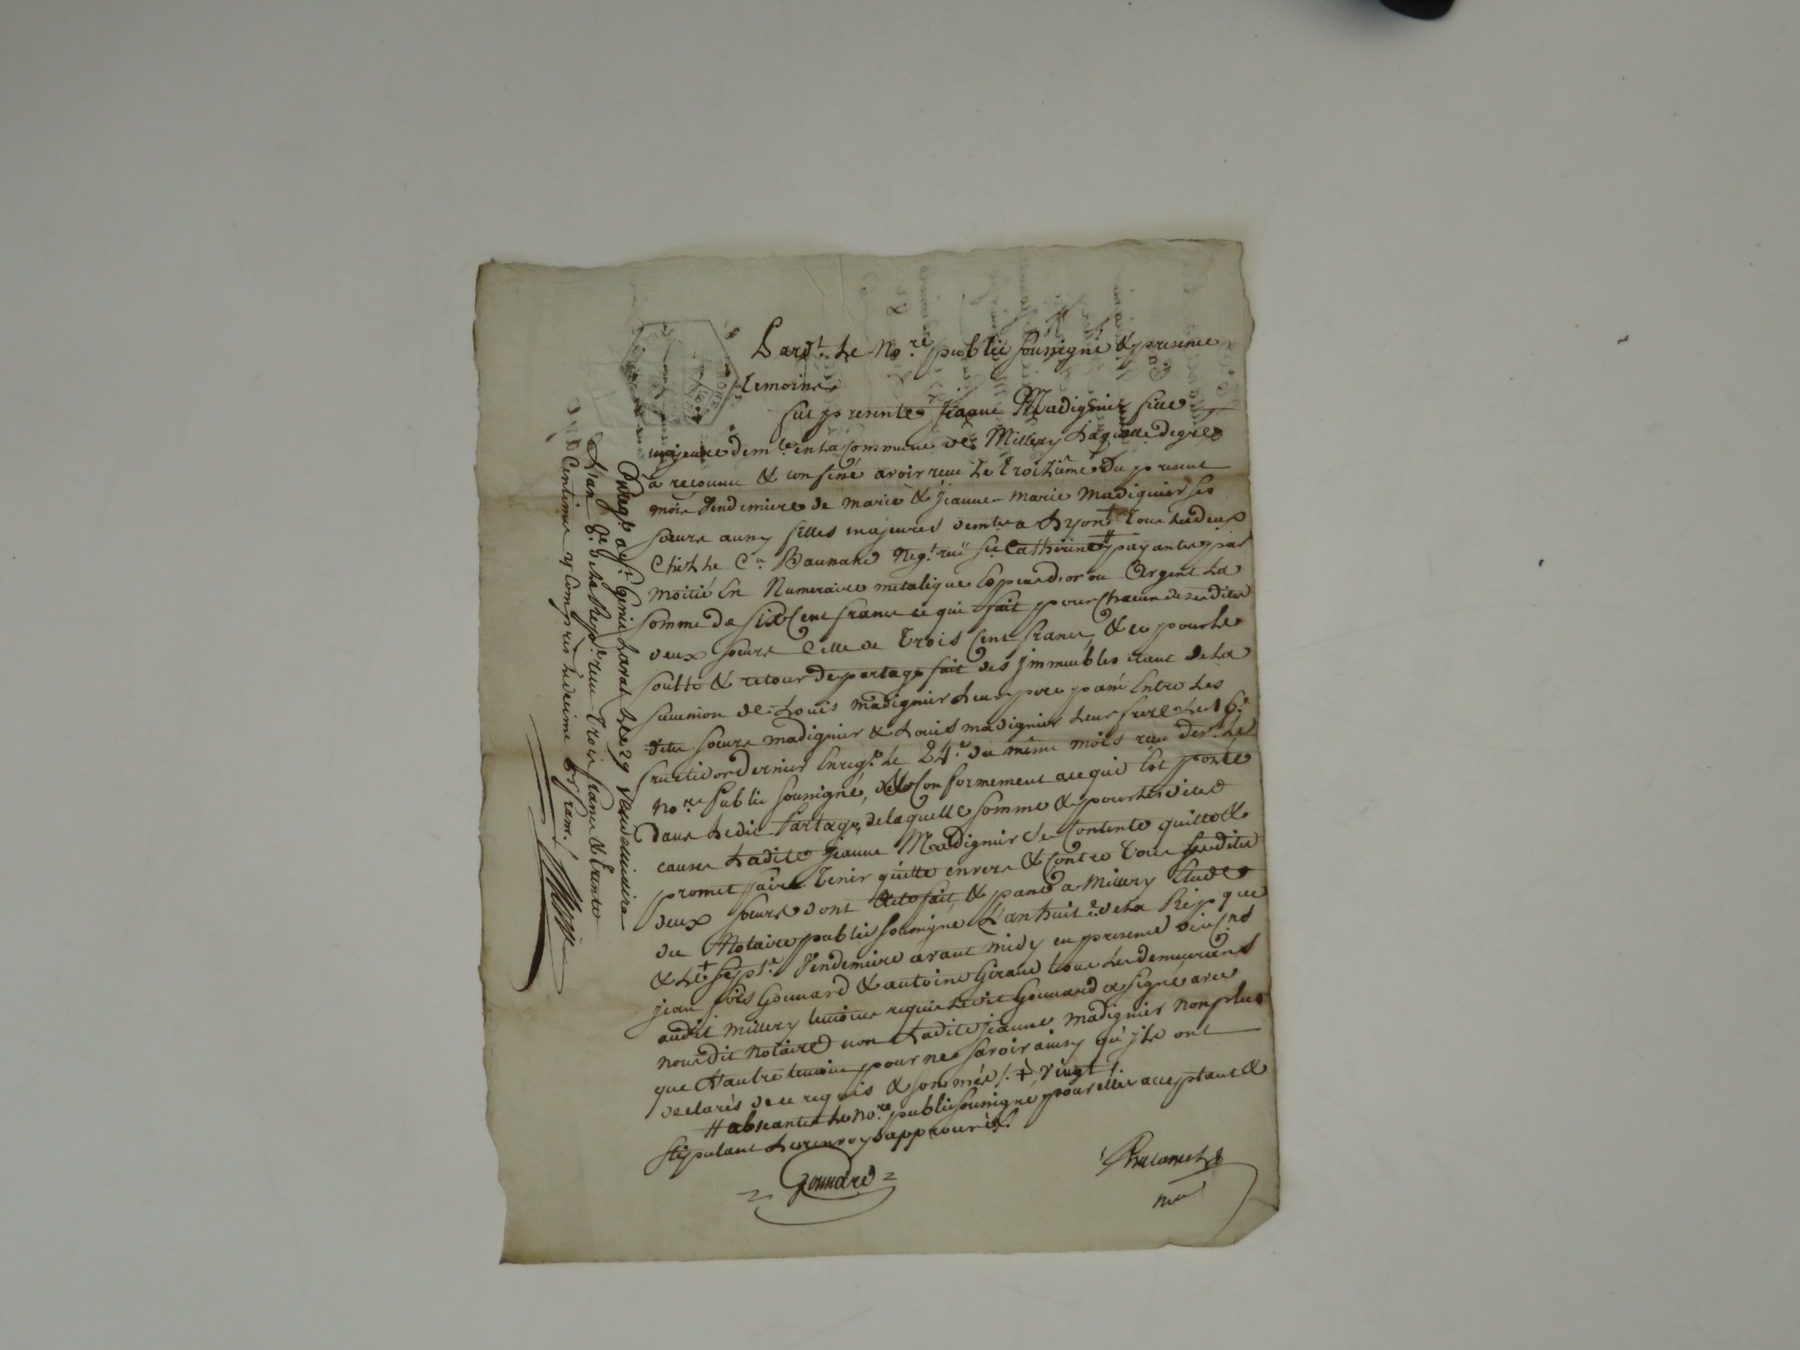 Pardt. le nore. public soussigné & presence
temoins
fut presente Jeanne Madignier fille
majeure demte. en la commune de Millery laquelle de gré
a reconnu & confessé avoir reçu le troizième du present
mois vendemiere de marie & jeanne marie madignier ses
soeurs aussy filles majeures demtes a Lyon † tous les deux
chez le Cn. Baunand Negt. rue Ste Catherine # payantes par
moitié en Numeraire metalique espece d'or ou d'argent la
somme de six cent francs ce qui fait pour chacune desdites
deux soeurs celle de trois cent francs, & ce pour le
soulte & retour de partage fait des immeubles etant de la
succession de Louis madignier leur pere passé entre les
dites soeurs madignier & Louis madignier leur frere le 16e.
fructidor dernier enregé. le 24e. du même mois reçu des. le
nore public soussigné, & conformement a ce qui est porté
dans ledit Partage, de laquelle somme & pour les susd
causes ladite Jeanne Madignier se contente quitte &
promet faire tenir quitte envers & contre tous lesdites
deux soeurs dont acte fait, & passé a Millery etude
du Notaire public soussigné L'an huit e. de la Repque
& le † sept e. vendemiere avant midy en presence de Cns
jean fois Gonnard & antoine Giraud tous les demeurants
audit millery temoins requis ledit Gonnard a signé avec
nous dit notaire non ladite jeanne madignier non plus
que l'autre temoin pour ne savoir ainsy qu'ils ont
declarés de ce requis & sommés /. † vingt /.
# absantes le nore. public soussigné pour elles acceptant &
stipulant le renvoy approuvés.
Gonnard
nore
Enregé. a St. Genis Laval le 29 vendemiaire
L'an 8e. de la Repe. reçu trois francs & trente
Centimes y compris le decime